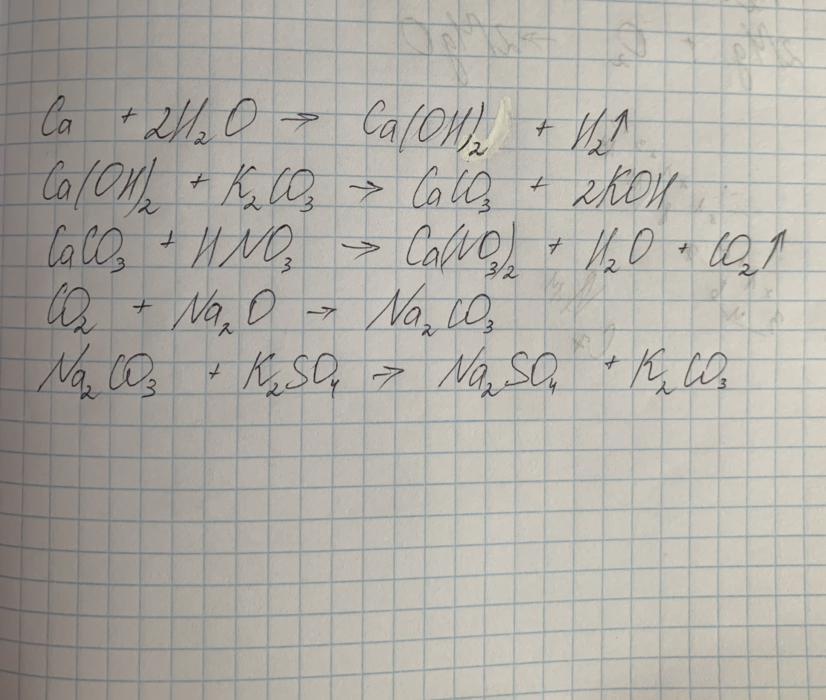 Ca + 2H₂O → Ca(OH)₂ + H₂↑
Ca(OH)₂ + K₂CO₃ → CaCO₃ + 2KOH
CaCO₃ + HNO₃ → Ca(NO₃)₂ + H₂O + CO₂↑
CO₂ + Na₂O → Na₂CO₃
Na₂CO₃ + K₂SO₄ → Na₂SO₄ + K₂CO₃